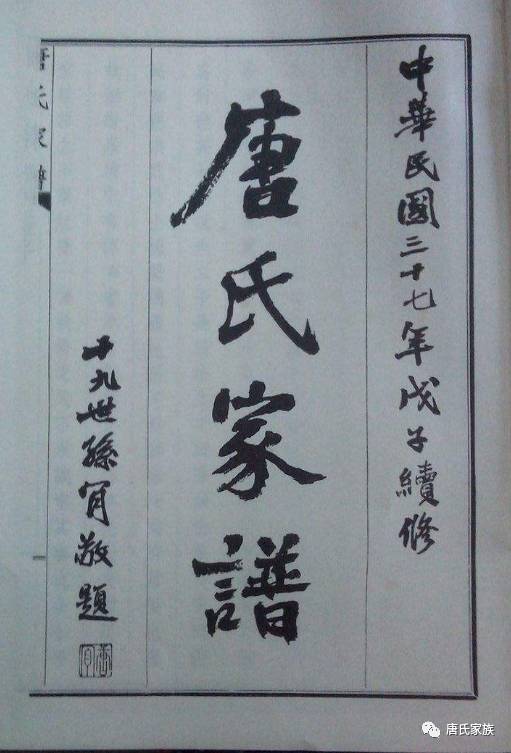 中華民國三十七年戊子續修
唐氏家譜
九世孫肎敬題
唐氏家譜
唐氏家族